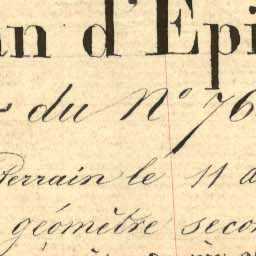 an d'Epi
du N° 76
terrain le 11 a
géomètre secon